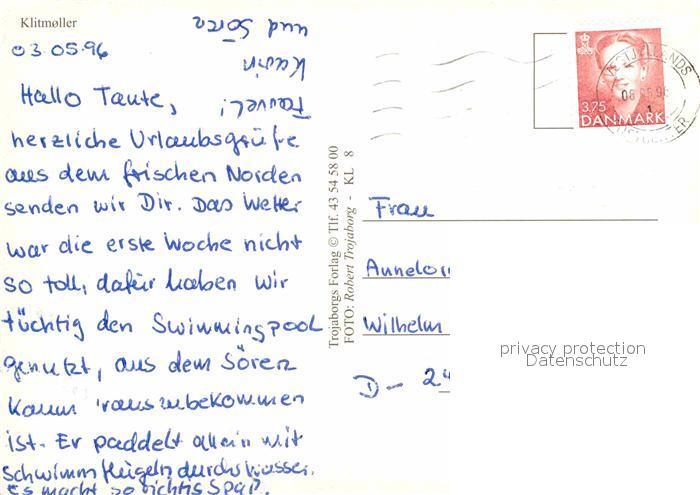 Klitmøller
03.05.96
Hallo Tante,
herzliche Urlaubsgrüße
aus dem frischen Norden
senden wir Dir. Das Wetter
war die erste Woche nicht
so toll, dafür haben wir
tüchtig den Swimmingpool
genutzt, aus dem Sören
kaum rauszubekommen
ist. Er paddelt allein mit
Schwimmflügeln durchs Wasser.
Es macht so richtig Spaß.
Karin
und Sören
Trojaborgs Forlag © Tlf. 43 54 58 00
FOTO: Robert Trojaborg - KL 8
3.75
DANMARK
Frau
Annelor
Wilhelm
D- 24
privacy protection
Datenschutz